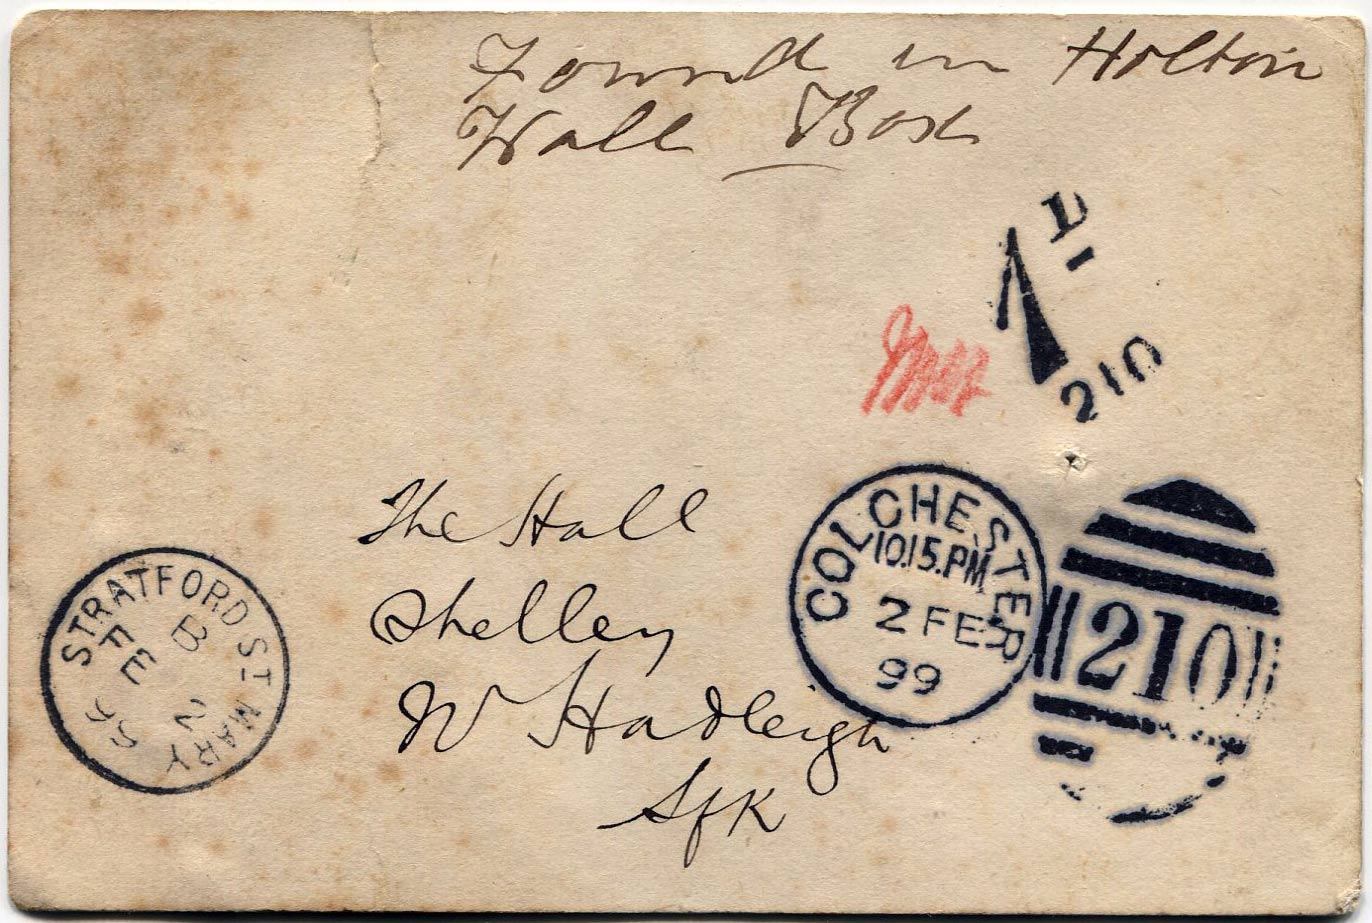 Found in Holton
Wall Box
1D
210
The Hall
Shelley
Nr Hadleigh
Sfk
COLCHESTER
10.15.PM
2 FE
99
210
STRATFORD ST MARY
B
FE 2
99